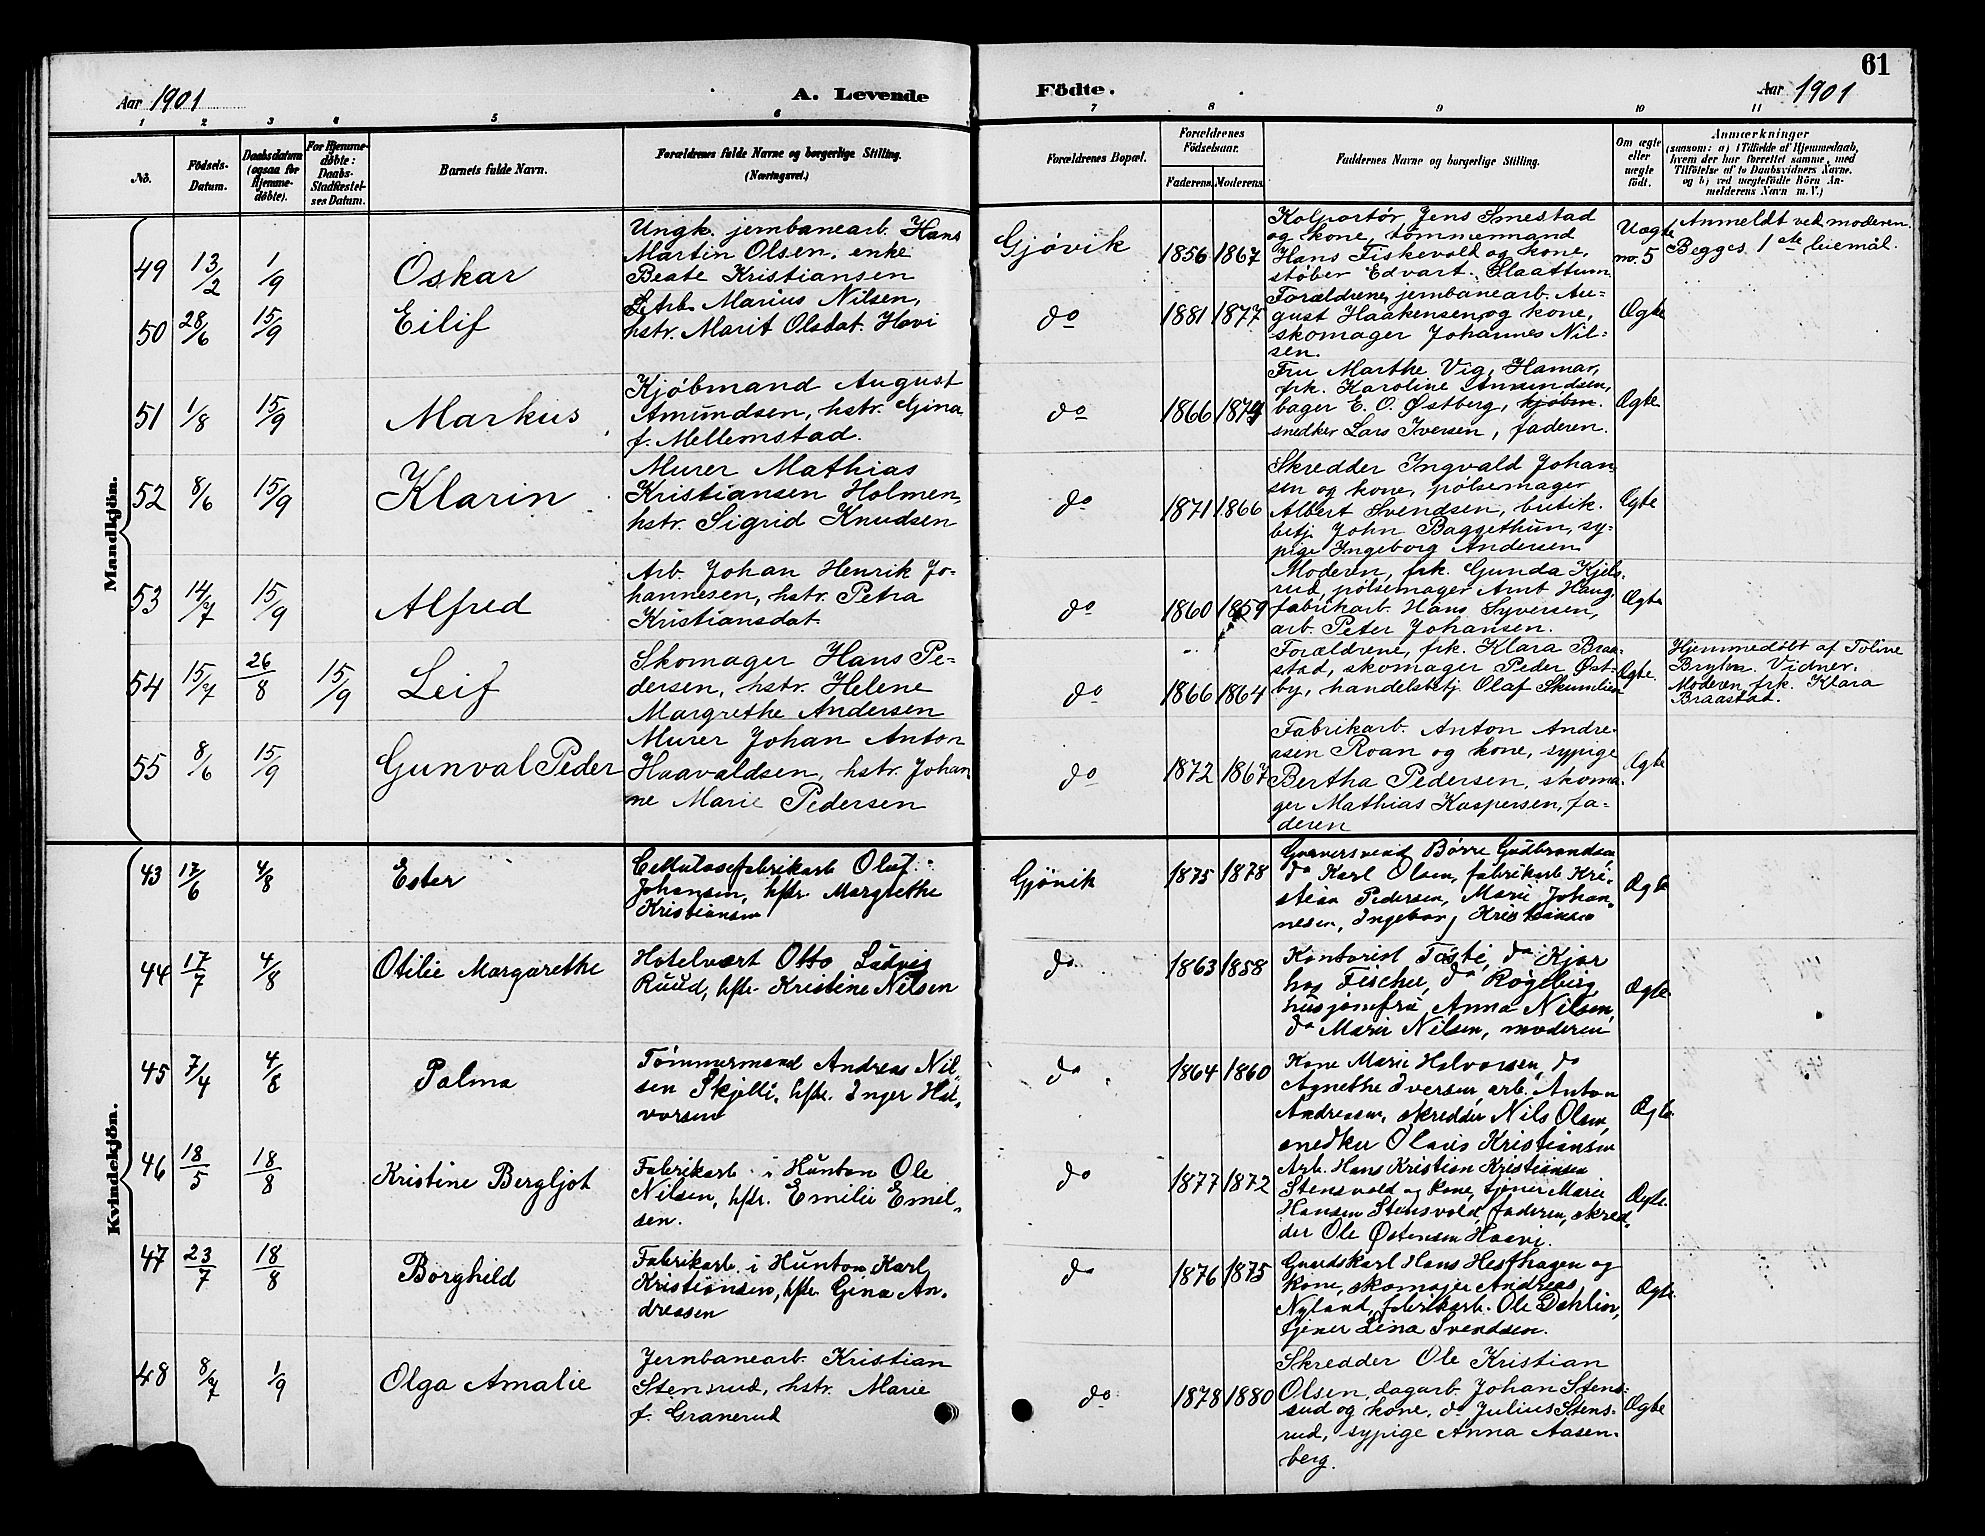 61
Aar 1901
A. Levende
Födte.
Aar 1901
1 2 3 4 5 6 7 8 9 10 11
No.
Födsels-Datum.
Daabsdatum (ogsaa for Hjemmedöbte).
For Hjemmedöbte: Daabs-Stadfæstelses Datum.
Barnets fulde Navn.
Forældrenes fulde Navne og borgerlige Stilling. (Næringsvei.)
Forældrenes Bopæl.
Forældrenes Födselsaar.
Faderens. Moderens.
Faddernes Navne og borgerlige Stilling.
Om ægte eller uægte födt.
Anmærkninger
(saasom: a) i Tilfælde af Hjemmedaab, hvem der har forrettet samme, med Tilföielse af to Daabsvidners Navne. og b) ved uægtefödte Börn Anmelderens Navn m. V.)
Mandkjön.
49 13/2 1/9 Oskar
Ungk. jernbanearb. Hans
Martin Olsen, enke
Beate Kristiansen
Gjövik 1856 1867
Kolportör Jens Smestad
og kone, tömmermand
Hans Fiskevold og kone,
stöber Edvart Slaattum
Uægte no. 5
Anmeldt ved moderen.
Begges 1ste leiemål.
50 28/6 15/9 Eilif
Arb. Marius Nilsen,
hstr. Marit Olsdat. Hovi
do 1881 1877
Forældrene, jernbanearb. Au-
gust Haakensen og kone,
skomager Johannes Nil-
sen.
Ægte
51 1/8 15/9 Markus
Kjöbmand August
Amundsen, hstr. Gina
f. Mellemstad.
do 1866 1874
Fru Marthe Vig, Hamar,
frk. Karoline Amundsen,
bager E. O. Østberg, kjöbm.
snedker Lars Iversen, faderen.
Ægte
52 8/6 15/9 Klarin
Murer Mathias
Kristiansen Holmen,
hstr. Sigrid Knudsen
do 1871 1866
Skredder Ingvald Johan
sen og kone, pölsemager
Albert Svendsen, butik.
betj. John Baggethun, sy-
pige Ingeborg Andersen
Ægte
53 14/7 15/9 Alfred
Arb. Johan Henrik Jo-
hannesen, hstr. Petra
Kristiansdat.
do 1860 1859
Moderen, frk. Gunda Kjels-
rud, pölsemager Arnt Haug,
fabrikarb. Hans Syversen,
arb. Peter Johansen.
Ægte
54 15/7 26/8 15/9 Leif
Skomager Hans Pe-
dersen, hstr. Helene
Margrethe Andersen
do 1866 1864
Forældrene, frk. Klara Braa-
stad, skomager Peder Øst-
by, handelsbetj. Olaf Skumlien
Ægte.
Hjemmedöbt af Toline
Vidner.
Moderen, frk. Klara
Braastad.
55 8/6 15/9 Gunval Peder
Murer Johan Anton
Haavaldsen, hstr. Johan
ne Marie Pedersen
do 1872 1867
Fabrikarb. Anton Andre-
asen Roan og kone, sypige
Bertha Pedersen, skoma-
ger Mathias Kaspersen, fa-
deren
Ægte
Kvindekjön.
43 17/6 4/8 Ester
Cellulosefabrikarb Olaf
Johansen, hstr. Margrethe
Kristiansen
Gjövik 1875 1878
Garversvend Börre Gudbrandsen,
do Karl Olsen, fabrikarb Kri-
stian Pedersen, Marie Johan-
nesen, Ingeborg Kristiansen
Ægte
44 17/7 4/8 Otilie Margarethe
Hotelvært Otto Ludvig
Ruud, hstr. Kristine Nilsen
do 1863 1858
Kontorist Toste, do Kjær
hos Fischer, do Rögeberg
husjomfru Anna Nilsen,
do Marie Nilsen, moderen
Ægte
45 7/4 4/8 Palma
Tömmermand Andreas Nil-
sen Skjelli, hstr. Inger Hal-
vorsen
do 1864 1860
Kone Marie Halvorsen, do
Agnethe Iversen, arb. Anton
Andreasen, skredder Nils Olsen,
snedker Olaus Kristiansen
Ægte
46 18/5 18/8 Kristine Bergljot
Fabrikarb. i Hunton Ole
Nilsen, hstr. Emilie Emil-
sen.
do 1877 1872
Arb. Hans Kristian Kristiansen
Stensvold og kone, tjener Marie
Hansen Stensvold, faderen, skred-
der Ole Østensen Haavi.
Ægte.
47 23/7 18/8 Borghild
Fabrikarb. i Hunton Karl
Kristiansen, hstr. Gina An-
dreasen
do 1876 1875
Gaardskarl Hans Hesthagen og
kone, skomager Andreas
Nyland, fabrikarb. Ole Dahlin,
tjener Lina Svendsen.
Ægte.
48 8/7 1/9 Olga Amalie
Jernbanearb. Kristian
Stensrud, hstr. Marie
f. Granerud
do 1878 1880
Skredder Ole Kristian
Olsen, dagarb. Johan Stens-
rud og kone, do Julius Stens-
rud, sypige Anna Aasen-
berg.
Ægte